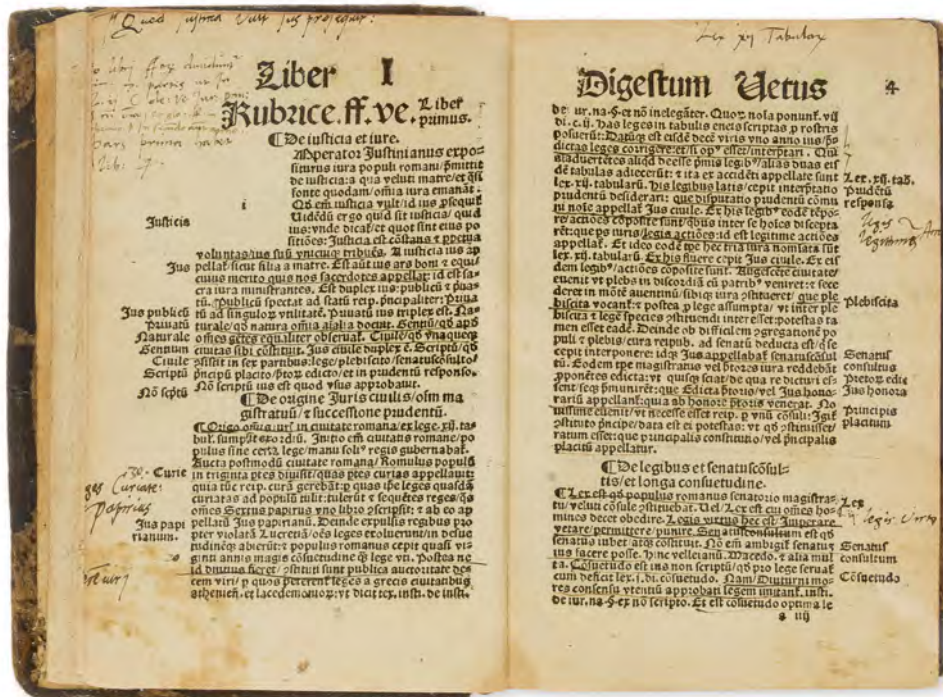 Quod justitia vult jus prosequitur:
Liber I
Rubrice. ff. ve. Liber primus.
¶ De iusticia et iure.
Imperator Iustinianus expo-
siturus iura populi romani/ p̄mittit
de iusticia: a qua veluti matre/et q̄si
fonte quodam/om̄ia iura emanāt.
Qḋ em̄ iusticia vult/id ius ꝓsequit̄
Uidēdū ergo quid sit iusticia/ quid
ius: vnde dicat̄ et quot sint eius po
sitiōes: Justicia est cōstans ⁊ ꝑpetua
voluntas/ius suū vnicuiqꝫ tribuēs. A iusticia ius ap
pellat̄ sicut filia a matre. Est aūt ius ars boni ⁊ equi
cuius merito quis nos sacerdotes appellat: id est sa-
cra iura ministrantes. Est duplex ius: publicū ⁊ p̄ua-
tū. Publicū spectat ad statū reip. p̄ncipaliter: Priua
tū ad singuloꝝ vtilitatē. Priuatū ius triplex est. Na-
turale/ qḋ natura om̄ia aīalia docuit. Gentiū/ qḋ apḋ
om̄es gētes equaliter obseruat̄. Ciuile/ qḋ vnaqueqꝫ
ciuitas sibi cōstituit. Jus ciuile duplex ē. Scriptū/ qḋ
ꝯsistit in sex partibus: lege/ plebiscito/senatuscōsulto
p̄ncipū placito/p̄toꝝ edicto/et in prudentū responso.
Nō scriptū ius est quod vsus approbauit.
¶ De origine Juris ciuilis/oīm ma
gistratuū/ ⁊ successione prudentū.
¶ Origo om̄is iuris in ciuitate romana/ex lege. xij. ta-
bul. sumpsit exordiū. Initio em̄ ciuitatis romane/po
pulus sine certa lege/manu soliꝰ regis gubernabat̄.
Aucta postmodū ciuitate romana/ Romulus populū
in triginta ptes diuisit/ quas ptes curias appellauit:
quia tūc reip. curā gerebāt: ꝑ quas ip̄e leges quasdā
curiatas ad populū tulit: tulerūt ⁊ sequētes reges/qḋs
omēs Sextus papirus vno libro ꝯscripsit: ⁊ ab eo ap
pellatū Jus papirianū. Deinde expulsis regibus pro
pter violatā Lucretiā/oēs leges exoluerunt/in desue
tudinēqꝫ abierūt: ⁊ populus romanus cepit quasi vi
ginti annis magis cōsuetudine q̄ lege vti. Postea ne
id diutius fieret/ ꝯstituti sunt publica auctoritate de-
cem viri/ ꝑ quos peterent̄ leges a grecis ciuitatibus
athenień. et lacedemonioꝝ: vt dicit tex. insti. de insti.
i
Justicia
Jus publicū
Priuatū
Naturale
Gentium
Ciuile
Scriptū
Nō scptū
30. Curie
Curiate
papirius
Jus papi
rianum.
Lex xij Tabularꝝ
Digestum Uetus 4
de iur. na. §. et nō inelegāter.
Has leges in tabulis eneis scriptas ꝓ rostris
posuerūt: Datūqꝫ est eisdē decē viris vno anno ius/ p̄-
dictas leges corrigere: et/si opꝰ esset/ interp̄tari.
dē tabulas adiecerūt: ⁊ ita ex accidēti appellate sunt
lex. xij. tabularū. His legibus latis/cepit interp̄tatio
prudentū desiderari: que disputatio prudentū cōmu
ni noīe appellat̄ Jus ciuile. Ex his legibꝰ eodē tēpo-
re/actiōes cōposite sunt/quibus inter se hoīes discepta
rēt: que ps iuris/legis actiōes: id est legitime actiōes
appellat̄. Et ideo eodē tꝑe hec tria iura nomīata sūt
lex. xij. tabularū. Ex his fluere cepit Jus ciuile. Ex eis
dem legibꝰ/actiōes cōposite sunt. Augescēte ciuitate/
euenit vt plebs in discordiā cū patribꝰ veniret: ⁊ sece
deret in mōtē auentinū/sibiqꝫ iura ꝯstitueret/ que ple
biscita vocant̄: ⁊ postea ꝓ lege assumpta/ vt inter ple
biscita ⁊ legē species ꝯstituendi interesset: potestas ta
men esset eadē. Deinde ob difficilem ꝯgregationē po
puli ⁊ plebis/cura reipub. ad senatū deducta est/ q̄ se
cepit interponere: idqꝫ Jus appellabat̄ senatuscōsul
tū. Eodem tꝑe magistratus vel p̄tores iura reddebāt
⁊ ꝓponētes edicta: vt quisqꝫ sciat/ de qua re dicturi es
sent/seqꝫ p̄munirēt: que Edicta p̄toris/ vel Jus hono-
rariū appellant̄: quia ab honore p̄toris venerat. No
uissime euenit/ vt necesse esset reip. ꝑ vnū cōsuli: Igit̄
ꝯstituto p̄ncipe/data est ei potestas: vt qḋ ꝯstituisset/
ratum esset: que principalis constitutio/ vel p̄ncipalis
placitū appellatur.
¶ De legibus et senatuscōsul-
tis/et longa consuetudine.
¶ Lex est qḋ populus romanus senatorio magistra-
tu/ veluti cōsule ꝯstituebat. Uel/ Lex est cui om̄es ho-
mines decet obedire. Legis virtus hec est: Imperare
vetare/permittere/punire. Senatusconsultum est qḋ
senatus iubet atqꝫ cōstituit. Nō em̄ ambigit̄ senatū
ius facere posse. Hinc velleianū. Macedo. ⁊ alia mul
ta. Cōsuetudo est ius non scriptū/ qḋ pro lege seruat̄
cum deficit lex. j. di. cōsuetudo. Nam/ Diuturni mo-
res consensu vtentiū approbati legem imitant̄. insti.
de iur. na. §. ex nō scripto. Et est cōsuetudo optima le
a iiij
Lex. xij. tab.
Prudētū
responsa
Legis
Plebiscita
Senatus
consultus
Pretoꝝ edic
Jus honora
Principis
placitum
Lex
legis virtu
Senatus
consultum
Cōsuetudo